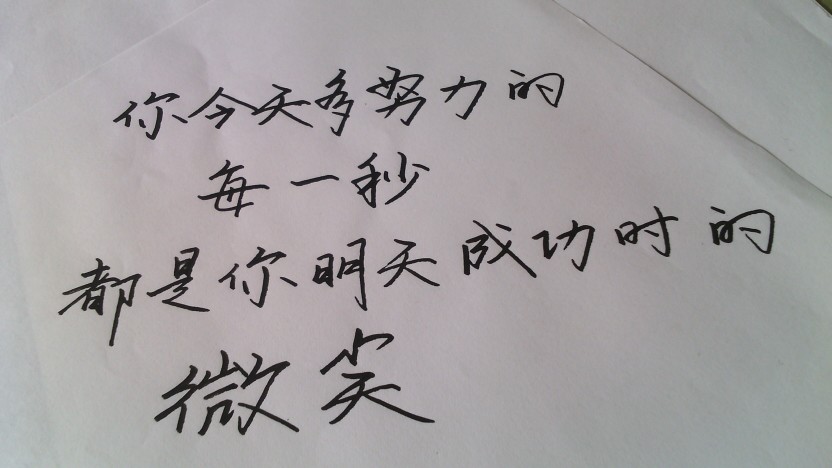 你今天多努力的
每一秒
都是你明天成功时的
微笑